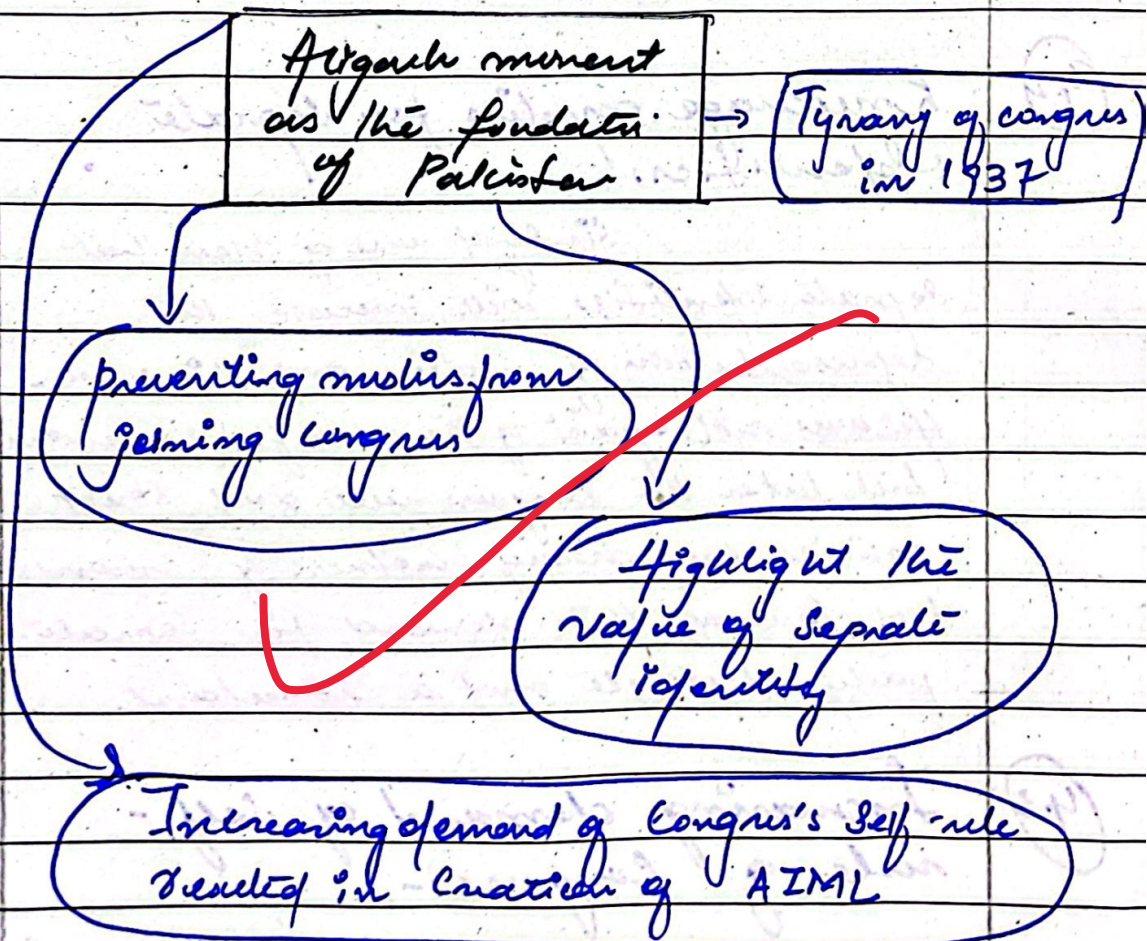 Aligarh movement
as the foundation
of Pakistan
Tyranny of congress
in 1937
preventing muslims from
joining congress
Highlight the
value of Seprate
identity
Increasing demand of Congress's Self-rule
resulted in Creation of AIML